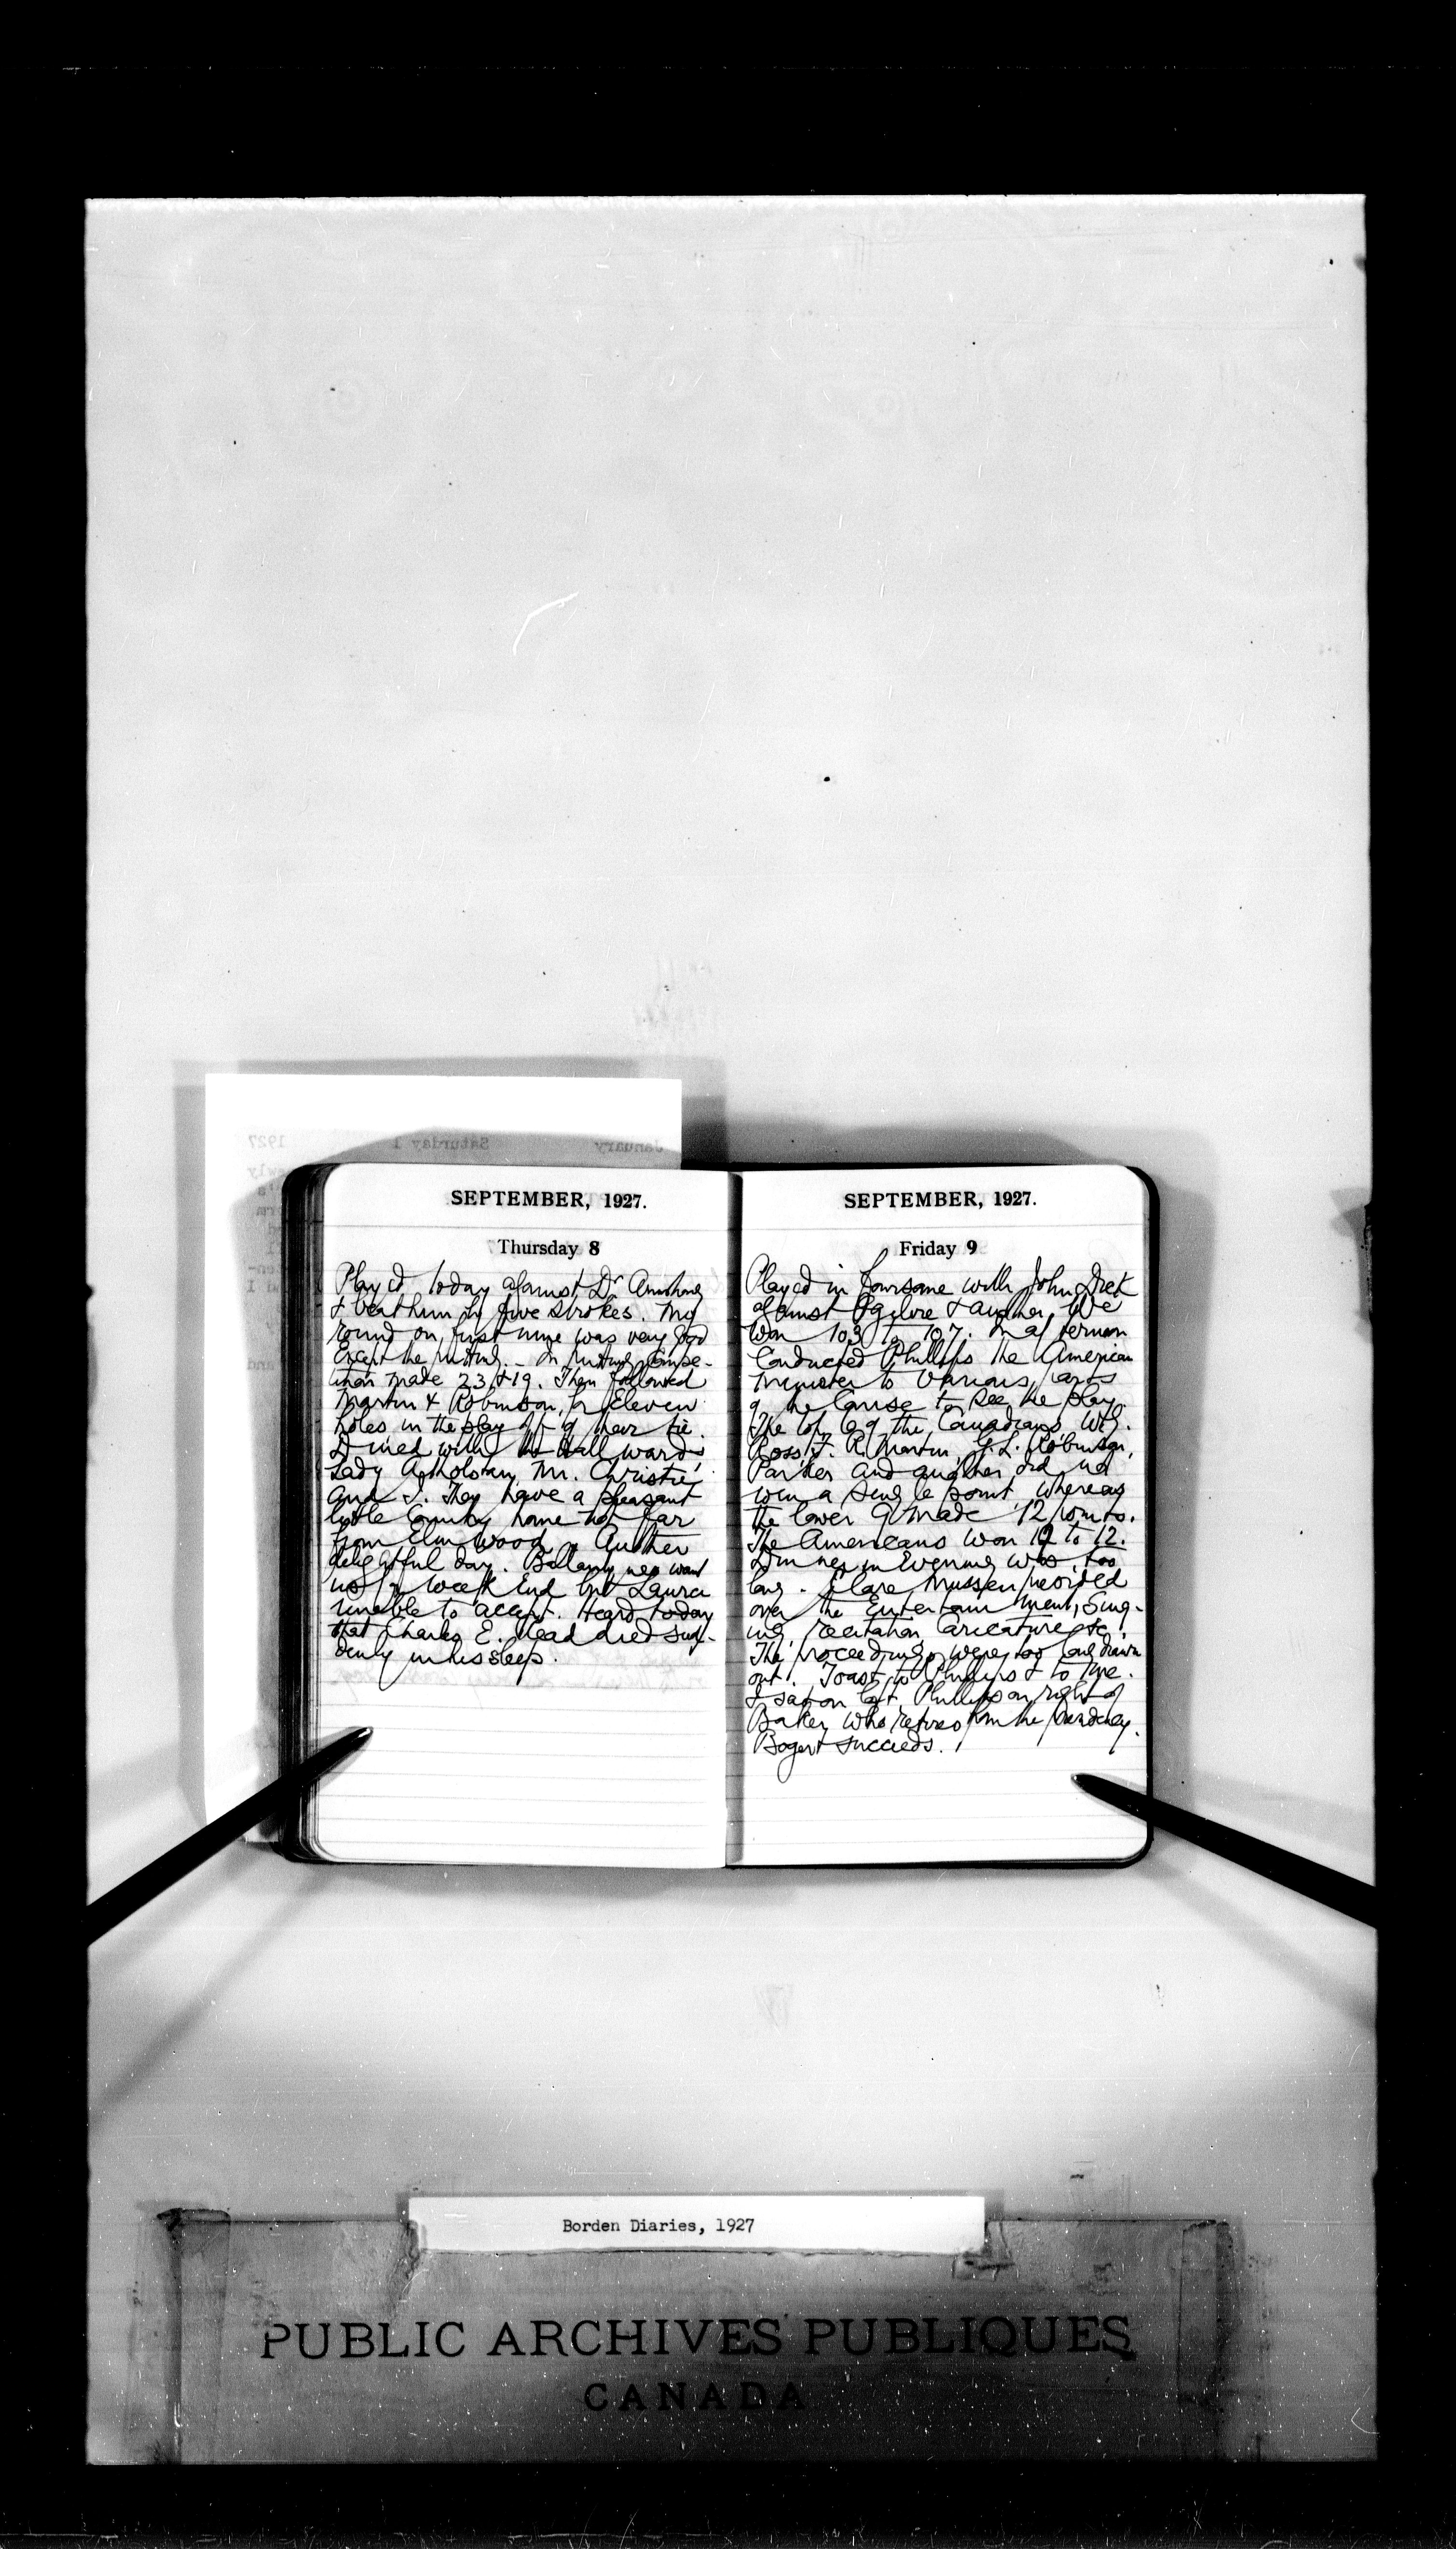 SEPTEMBER, 1927.
Thursday 8
Played today against Dr Armstrong
& beat him by five strokes. My
round on first nine was very good
except the putting. - In putting compe-
tition made 23 & 19. Then followed
Martin & Robinson for eleven
holes in the play off of their tie.
Dined with Hallwards
Lady Allan Mr. Christie
and I. They have a pleasant
little Country home not far
from Elmwood. Another
delightful day. want
us for week end but Laura
unable to accept. Heard today
that Charles E. Read died sud-
denly in his sleep.
SEPTEMBER, 1927.
Friday 9
Played in foursome with John
against Ogilvie & another. We
won 103 to 107. In afternoon
Conducted Phillips the American
Minister to various parts
of the Course to see the play.
The top of the Canadians, W.G.
Ross, J. R. Martin, G. L. Robinson,
Parker and another did not
win a single point whereas
the lower 9 made 12 points.
The Americans won to 12.
Dinner in Evening was too
long. Clare Mussen presided
over the Entertainment, Sing-
ing, recitation Caricature etc.
The proceedings were too long drawn
out. Toast to Phillips & to me.
I sat on left, Phillips on right of
Baker who retires from the presidency.
Bogert succeeds.
January Saturday 1 1927
Borden Diaries, 1927
PUBLIC ARCHIVES PUBLIQUES
CANADA